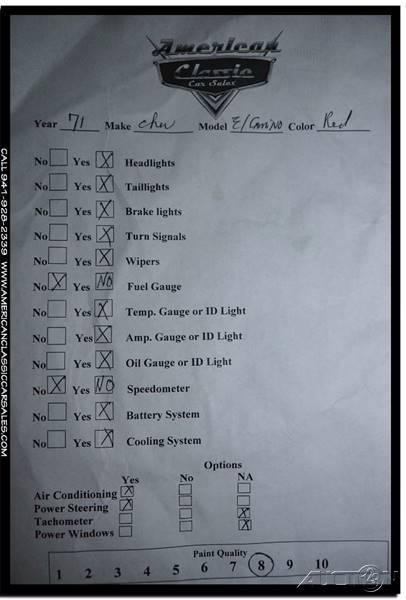 American
Classic
Car Sales
Year 71 Make Chev Model El Camino Color Red
No Yes X Headlights
No Yes X Taillights
No Yes X Brake lights
No Yes X Turn Signals
No Yes X Wipers
No X Yes NO Fuel Gauge
No Yes X Temp. Gauge or ID Light
No Yes X Amp. Gauge or ID Light
No Yes X Oil Gauge or ID Light
No X Yes NO Speedometer
No Yes X Battery System
No Yes X Cooling System
Options
Yes No NA
Air Conditioning X
Power Steering X
Tachometer X
Power Windows X
Paint Quality
1 2 3 4 5 6 7 8 9 10
CALL 941-928-2339 WWW.AMERICANCLASSICCARSALES.COM